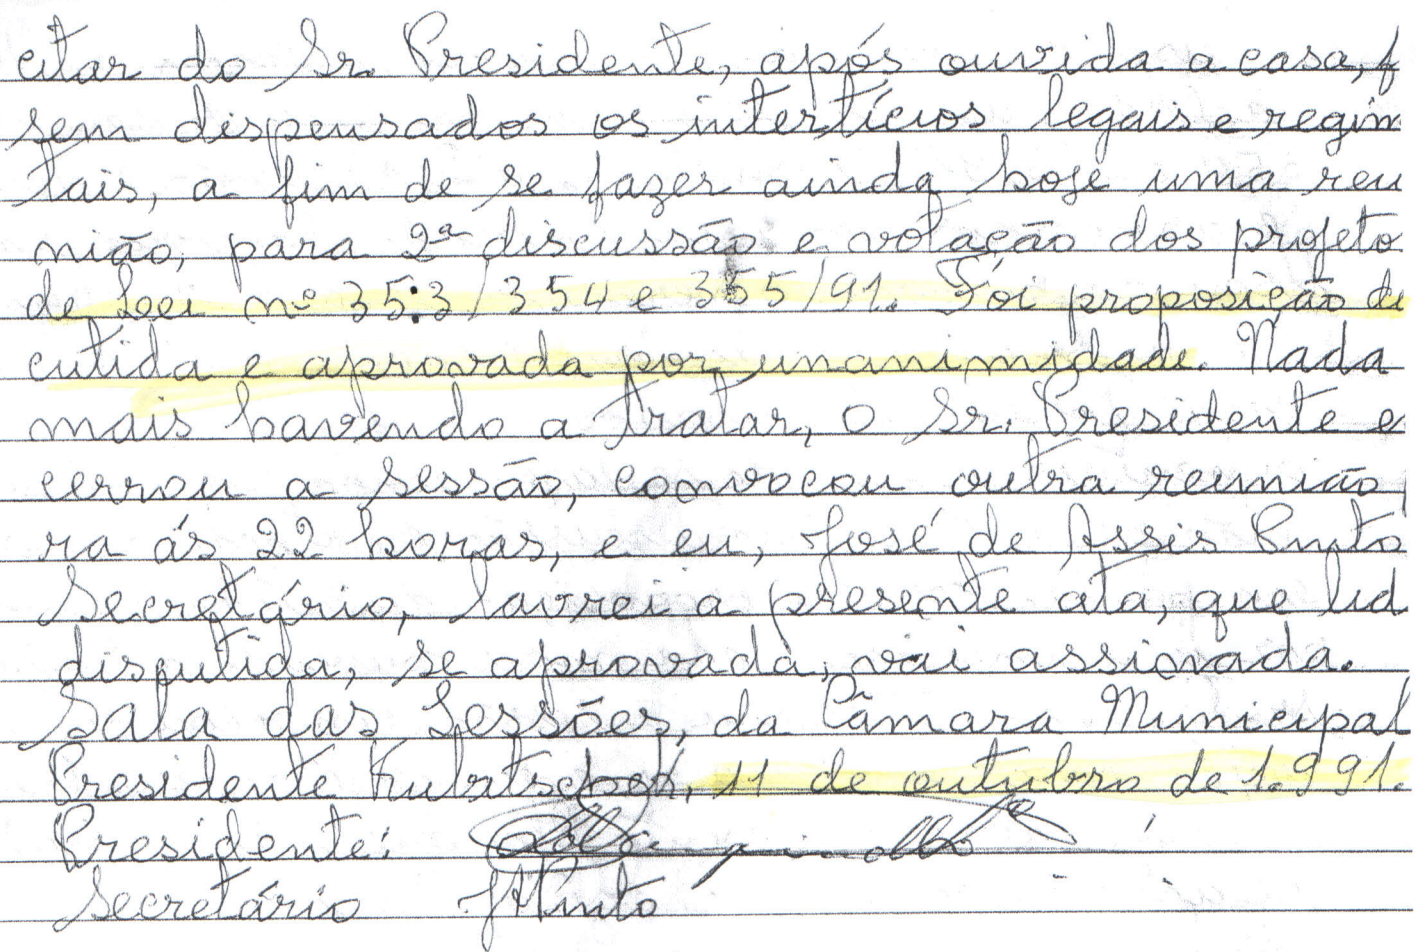 citar do Sr. Presidente, após ouvida a casa, f
sem dispensados os intertícios legais e regim
tais, a fim de se fazer ainda hoje uma reu
nião, para 2ª discussão e votação dos projeto
de Lei nº 353/354 e 355/91. Foi proposição di
cutida e aprovada por unanimidade. Nada
mais havendo a tratar, o Sr. Presidente e
cerrou a Sessão, convocou outra reunião
ra ás 22 horas, e eu, José de Assis Pinto
Secretário, lavrei a presente ata, que lid
discutida, se aprovada, vai assinada.
Sala das Sessões, da Câmara Municipal
Presidente Kubitschek, 11 de outubro de 1.991.
Presidente:
Secretário JAPinto